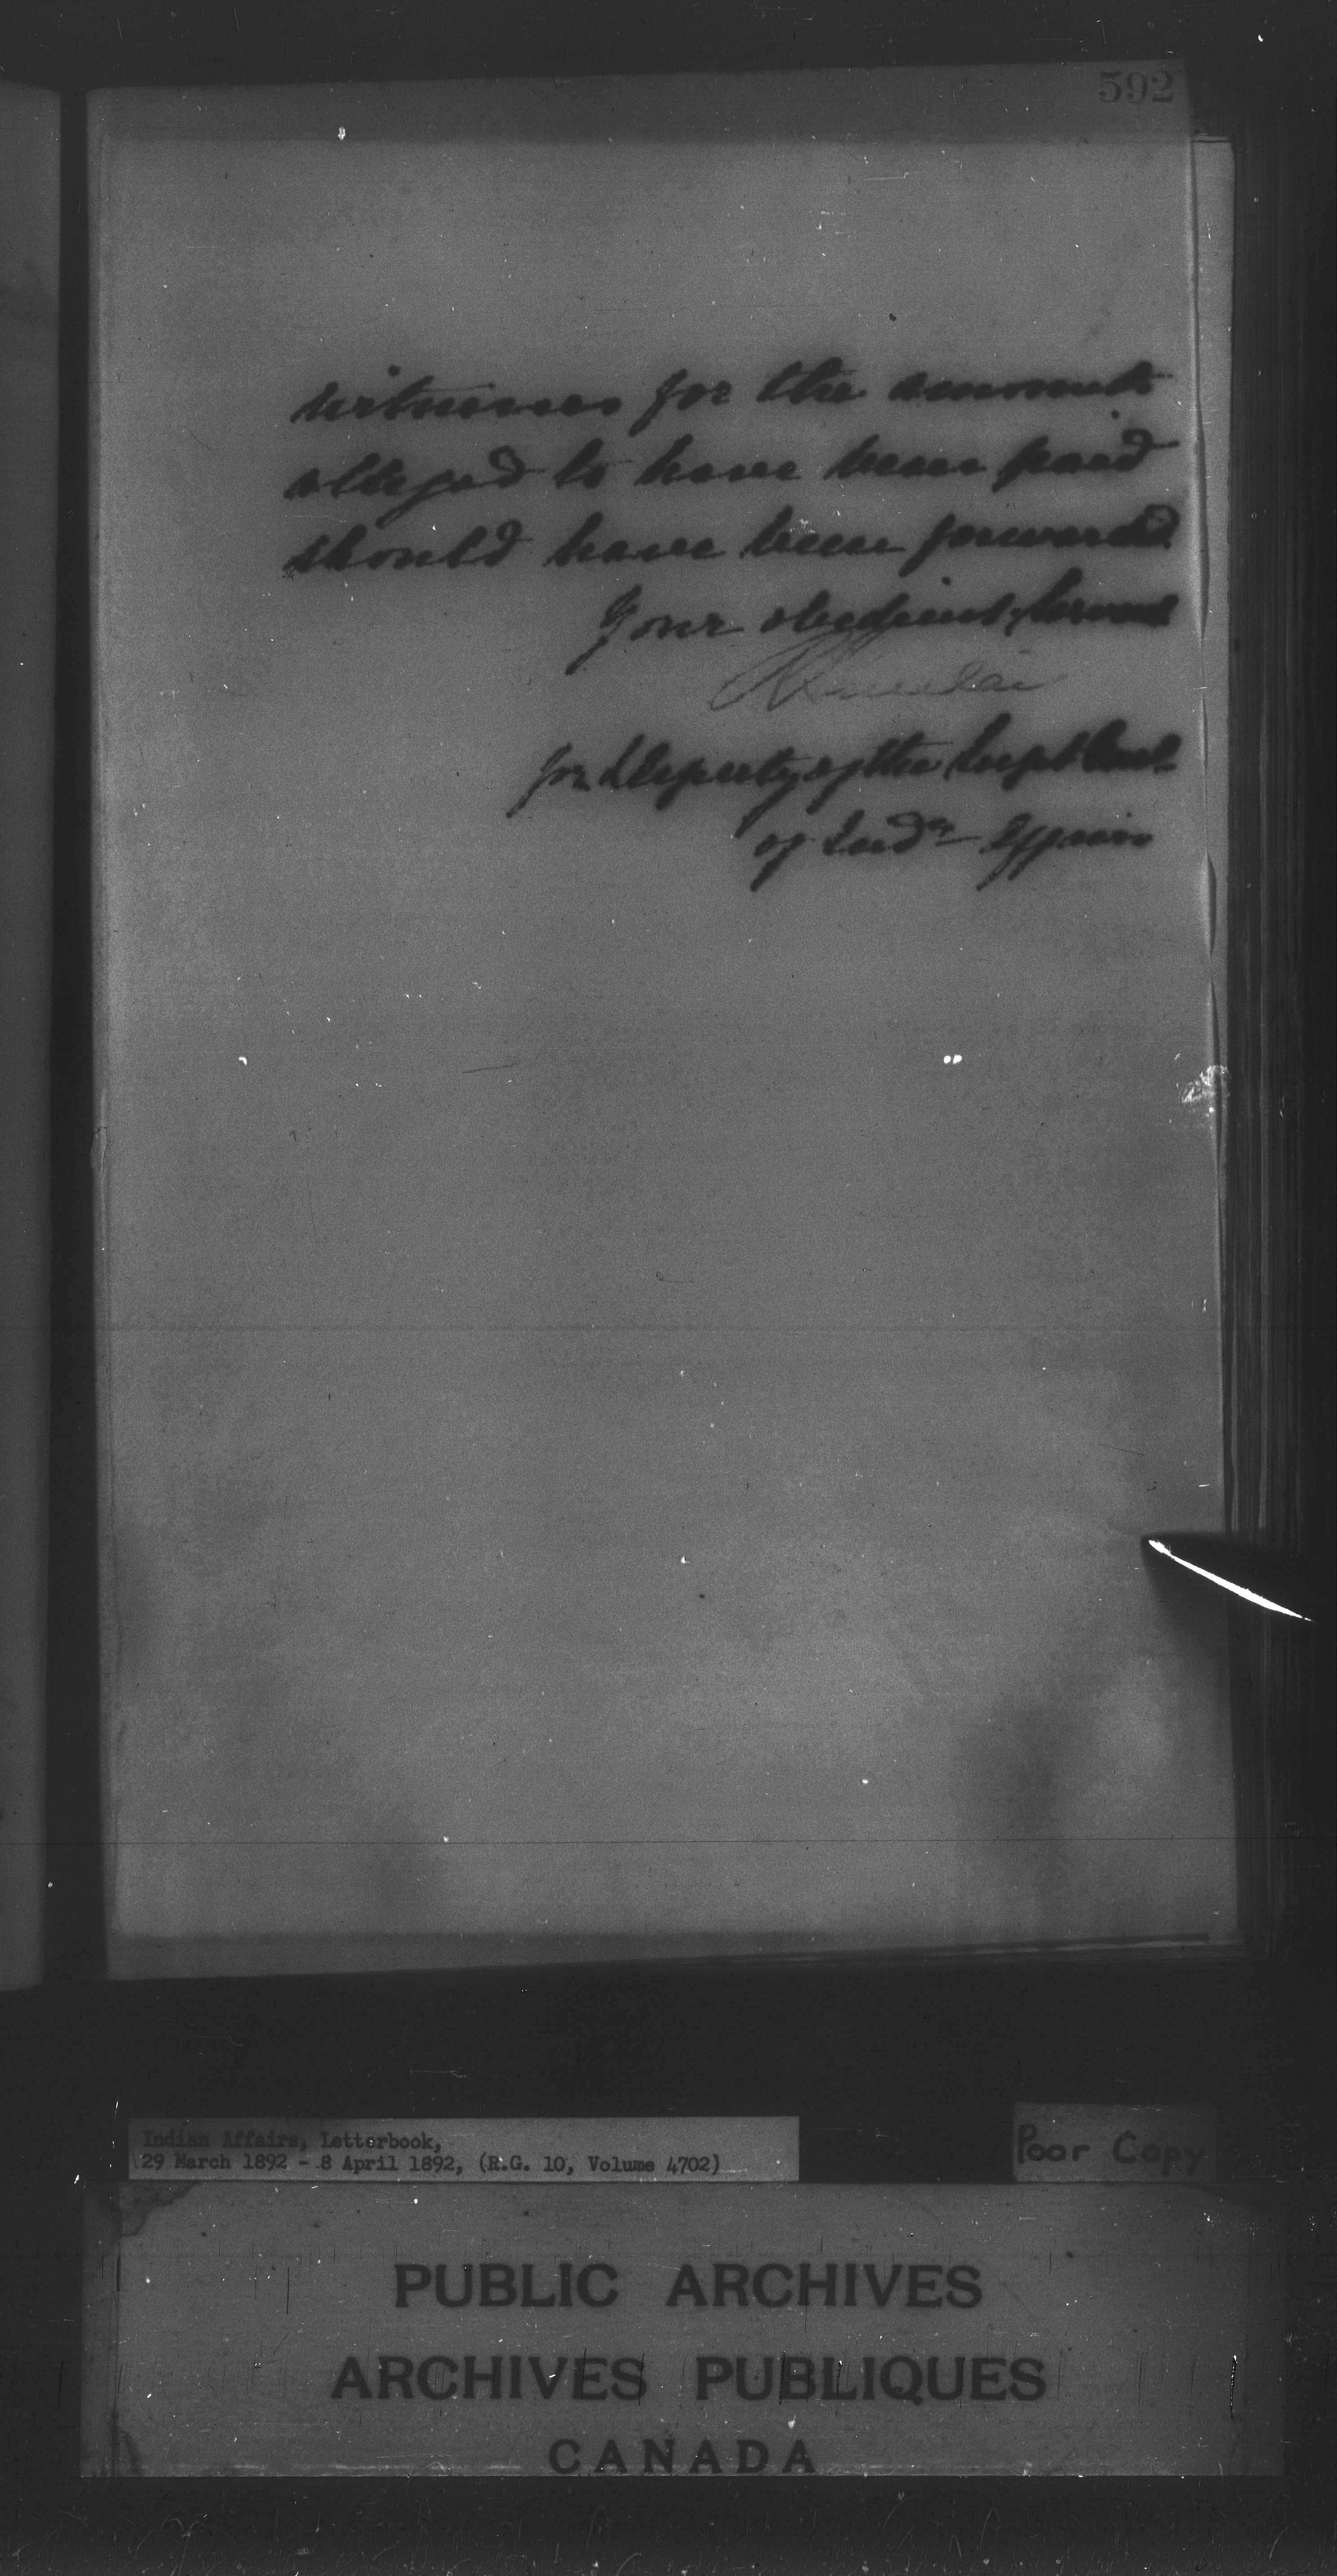 592
witnesses for the amounts
alleged to have been paid
should have been forwarded.
Your obedient servant
for Deputy of the Supt Genl.
of Indn Affairs
Indian Affairs, Letterbook,
29 March 1892 - 8 April 1892, (R.G. 10, Volume 4702)
Poor Copy
PUBLIC ARCHIVES
ARCHIVES PUBLIQUES
CANADA